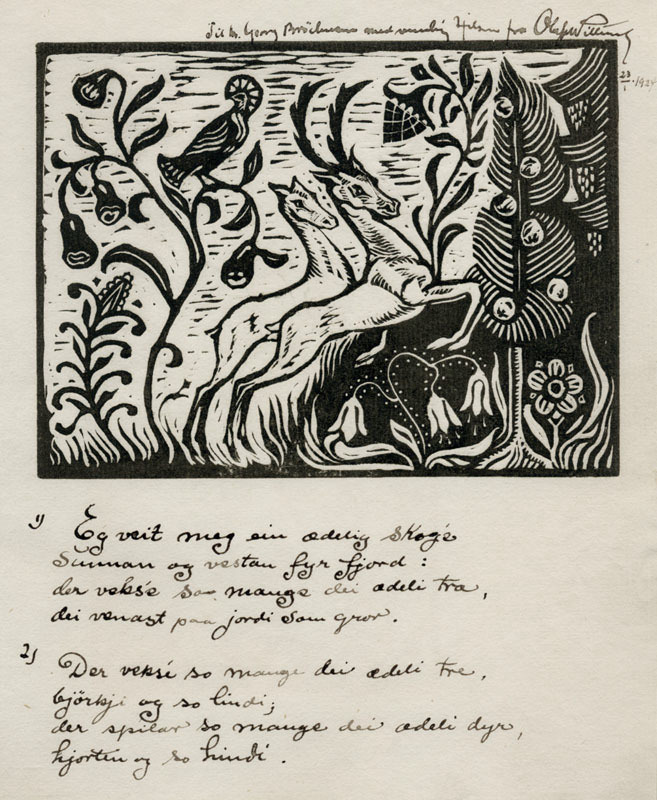 Til Hr. Georg Brochmann med vennlig hilsen fra Olaf Willums
23/1. 192
1) Eg veit meg ein ædelig skog'e
Sunnan og vestan fyr fjord:
der veks'e so mange dei ædeli tra,
dei venast paa jordi som gror.
2) Der veksé so mange dei ædeli tre,
björkji og so lindi;
der spelar so mange dei ædeli dyr,
hjorten og so hindi.